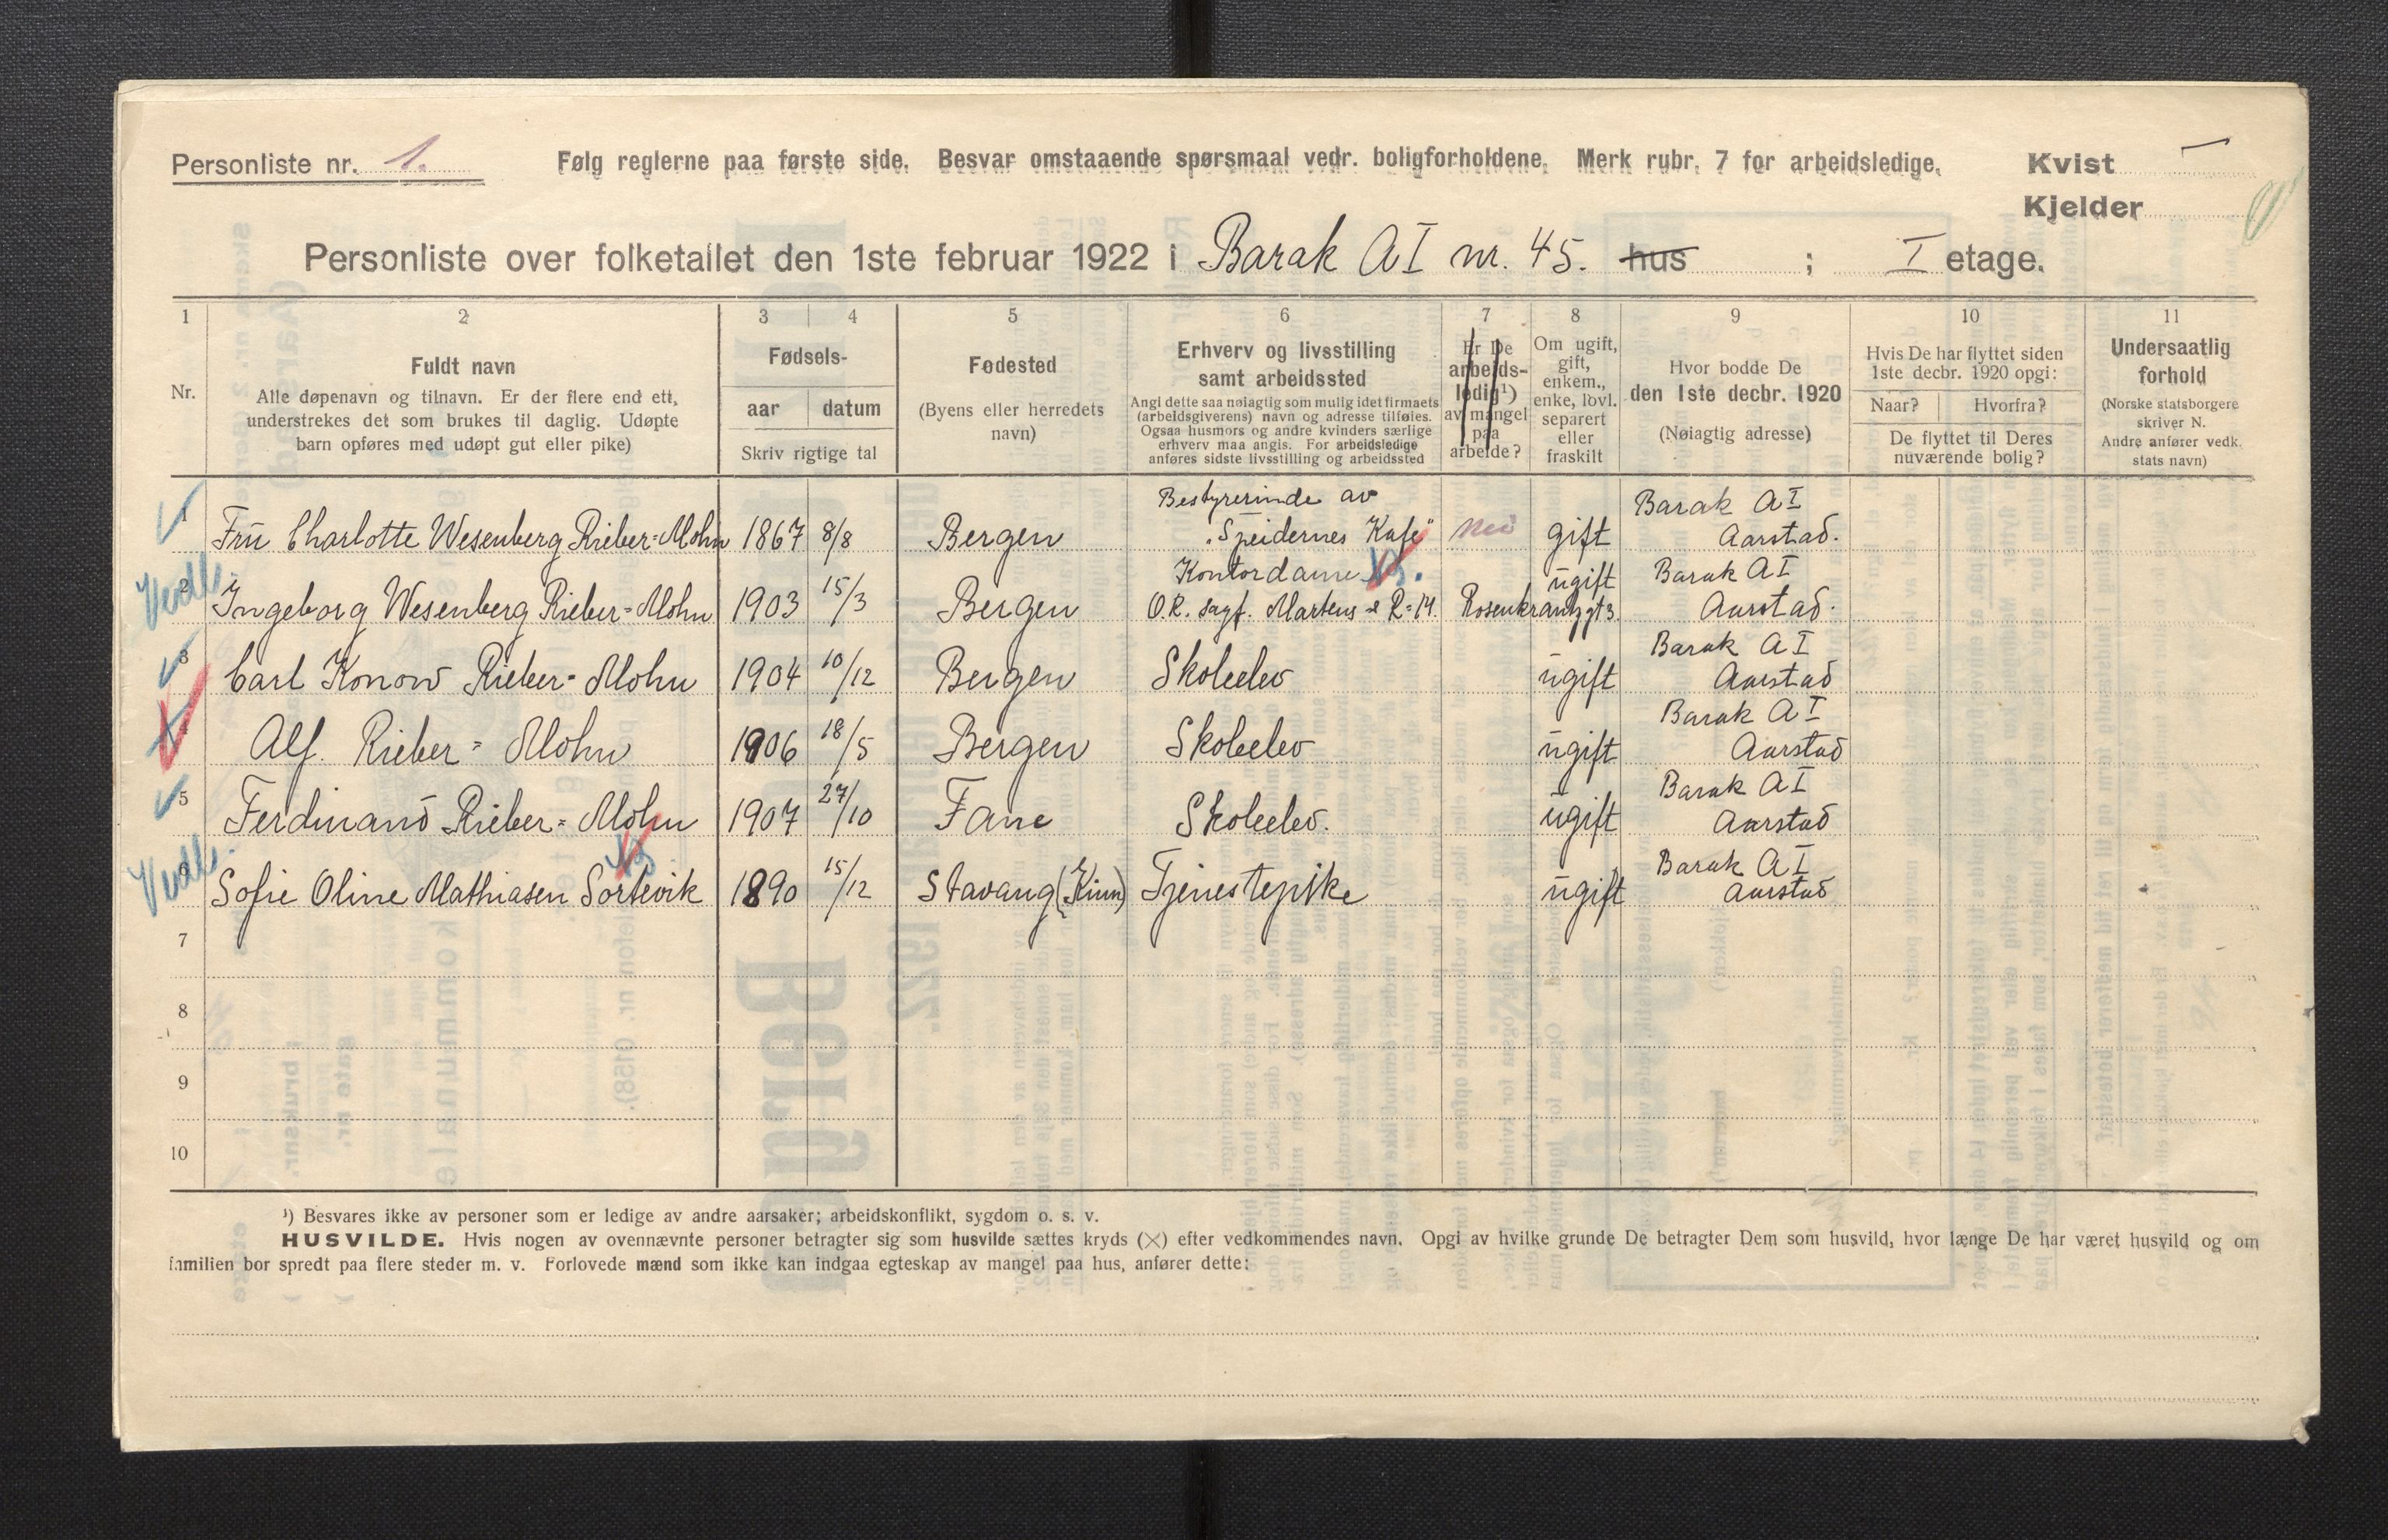 Personliste nr. 1. Følg reglerne paa første side. Besvar omstaaende spørsmaal vedr. boligforholdene. Merk rubr. 7 for arbeidsledige. Kvist
Kjelder
Personliste over folketallet den 1ste februar 1922 i Barak A I nr. 45. hus ; I etage.
1 2 3 4 5 6 7 8 9 10 11
Nr.
Fuldt navn
Alle døpenavn og tilnavn. Er der flere end ett,
understrekes det som brukes til daglig. Udøpte
barn opføres med udøpt gut eller pike)
Fødsels-
aar datum
Skriv rigtige tal
Fødested
(Byens eller herredets
navn)
Erhverv og livsstilling
samt arbeidssted
Angi dette saa nøiagtig som mulig idet firmaets
(arbeidsgiverens) navn og adresse tilføies.
Ogsaa husmors og andre kvinders særlige
erhverv maa angis. For arbeidsledige
anføres sidste livsstilling og arbeidssted
Er De
arbeids-
ledig¹)
av mangel
paa
arbeide?
Om ugift,
gift,
enkem.,
enke, lovl.
separert
eller
fraskilt
Hvor bodde De
den 1ste decbr. 1920
(Nøiagtig adresse)
Hvis De har flyttet siden
1ste decbr. 1920 opgi:
Naar? Hvorfra?
De flyttet til Deres
nuværende bolig?
Undersaatlig
forhold
(Norske statsborgere
skriver N.
Andre anfører vedk.
stats navn)
Bestyrerinde av Barak A I
1 Fru Charlotte Wesenberg Rieber-Mohn 1867 8/8 Bergen "Speidernes Kafe" nei gift Aarstad.
Kontordame ugift Barak A I
2 Ingeborg Wesenberg Rieber-Mohn 1903 15/3 Bergen O.R. sagf. Martens & R-M. Rosenkrantzgt 3. Aarstad.
Barak A I
3 Carl Konow Rieber-Mohn 1904 10/12 Bergen Skoleelev ugift Aarstad
Barak A I
4 Alf. Rieber-Mohn 1906 18/5 Bergen Skoleelev ugift Aarstad
Barak A I
5 Ferdinand Rieber-Mohn 1907 27/10 Fane Skoleelev. ugift Aarstad
Barak A I
6 Sofie Oline Mathiasen Sortevik 1890 15/12 Stavang (Kinn) Tjenestepike ugift Aarstad
7
8
9
10
¹) Besvares ikke av personer som er ledige av andre aarsaker; arbeidskonflikt, sygdom o. s. v.
HUSVILDE. Hvis nogen av ovennævnte personer betragter sig som husvilde sættes kryds (×) efter vedkommendes navn. Opgi av hvilke grunde De betragter Dem som husvild, hvor længe De har været husvild og om
familien bor spredt paa flere steder m. v. Forlovede mænd som ikke kan indgaa egteskap av mangel paa hus, anfører dette: